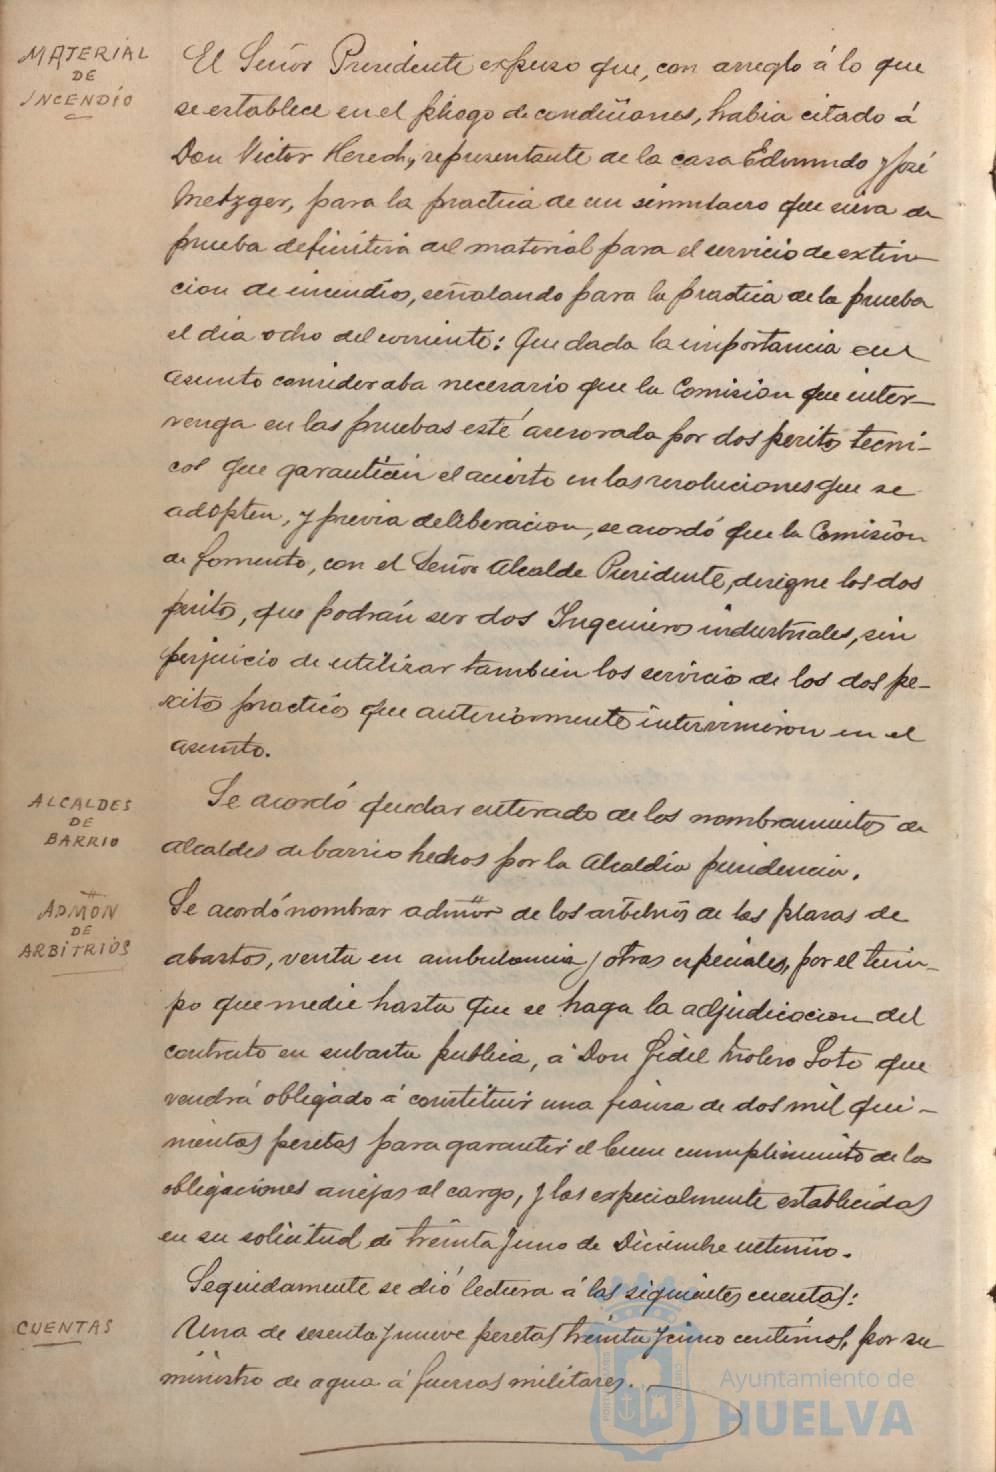 MATERIAL
DE
INCENDIO
El Señor Presidente expuso que, con arreglo á lo que
se establece en el pliego de condiciones, habia citado á
Don Victor Herech, representante de la casa Edmundo y José
Metzger, para la practica de un simulacro que sirva de
prueba definitiva del material para el servicio de extin-
cion de incendios, señalando para la practica de la prueba
el dia ocho del corriente: Que dada la importancia del
asunto consideraba necesario que la Comision que inter-
venga en las pruebas esté asesorada por dos peritos tecni-
cos que garanticen el acierto en las resoluciones que se
adopten, y previa deliberacion, se acordó que la Comision
de fomento, con el Señor Alcalde Presidente, designe los dos
peritos, que podrán ser dos Ingenieros industriales, sin
perjuicio de utilizar tambien los servicios de los dos pe-
ritos practicos que anteriormente intervinieron en el
asunto.
ALCALDES
DE
BARRIO
Se acordó quedar enterado de los nombramientos de
alcaldes de barrio hechos por la Alcaldia presidencia.
ADMÓN
DE
ARBITRIOS
Se acordó nombrar admor de los arbitrios de las plazas de
abastos, venta en ambulancia y otras especiales, por el tiem-
po que medie hasta que se haga la adjudicacion del
contrato en subasta publica, á Don Fidel Molero Soto que
vendrá obligado á constituir una fianza de dos mil qui-
nientas pesetas para garantir el buen cumplimiento de las
obligaciones anejas al cargo, y las especialmente establecidas
en su solicitud de treinta y uno de Diciembre ultimo.
Seguidamente se dió lectura á las siguientes cuentas:
CUENTAS
Una de sesenta y nueve pesetas treinta y cinco centimos, por su-
ministro de agua á fuerzas militares.
Ayuntamiento de
HUELVA